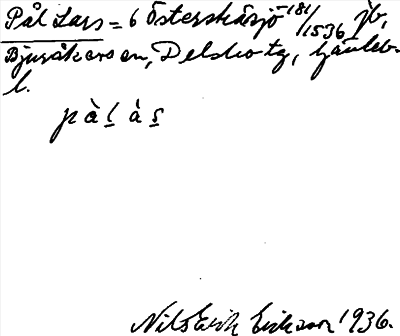 Pål Lars = 6 Österskärsjö 181/1536 jb,
Bjuråkers sn, Delsbo tg, Gävleb.
l.
pàl̠ às̠
Nils Erik Eriksson 1936.